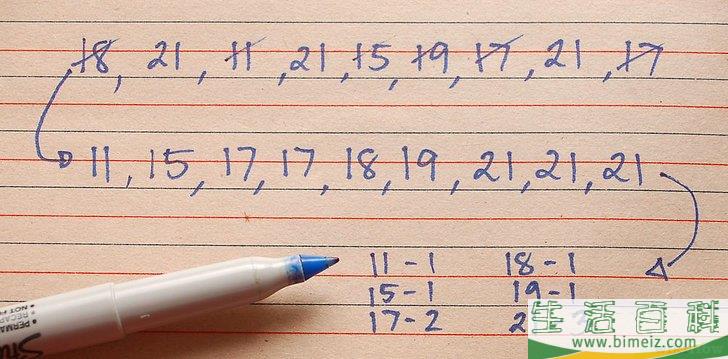 18, 21, 11, 21, 15, 19, 17, 21, 17
11, 15, 17, 17, 18, 19, 21, 21, 21
11-1 18-1
15-1 19-1
17-2
生活百科
www.bimeiz.com